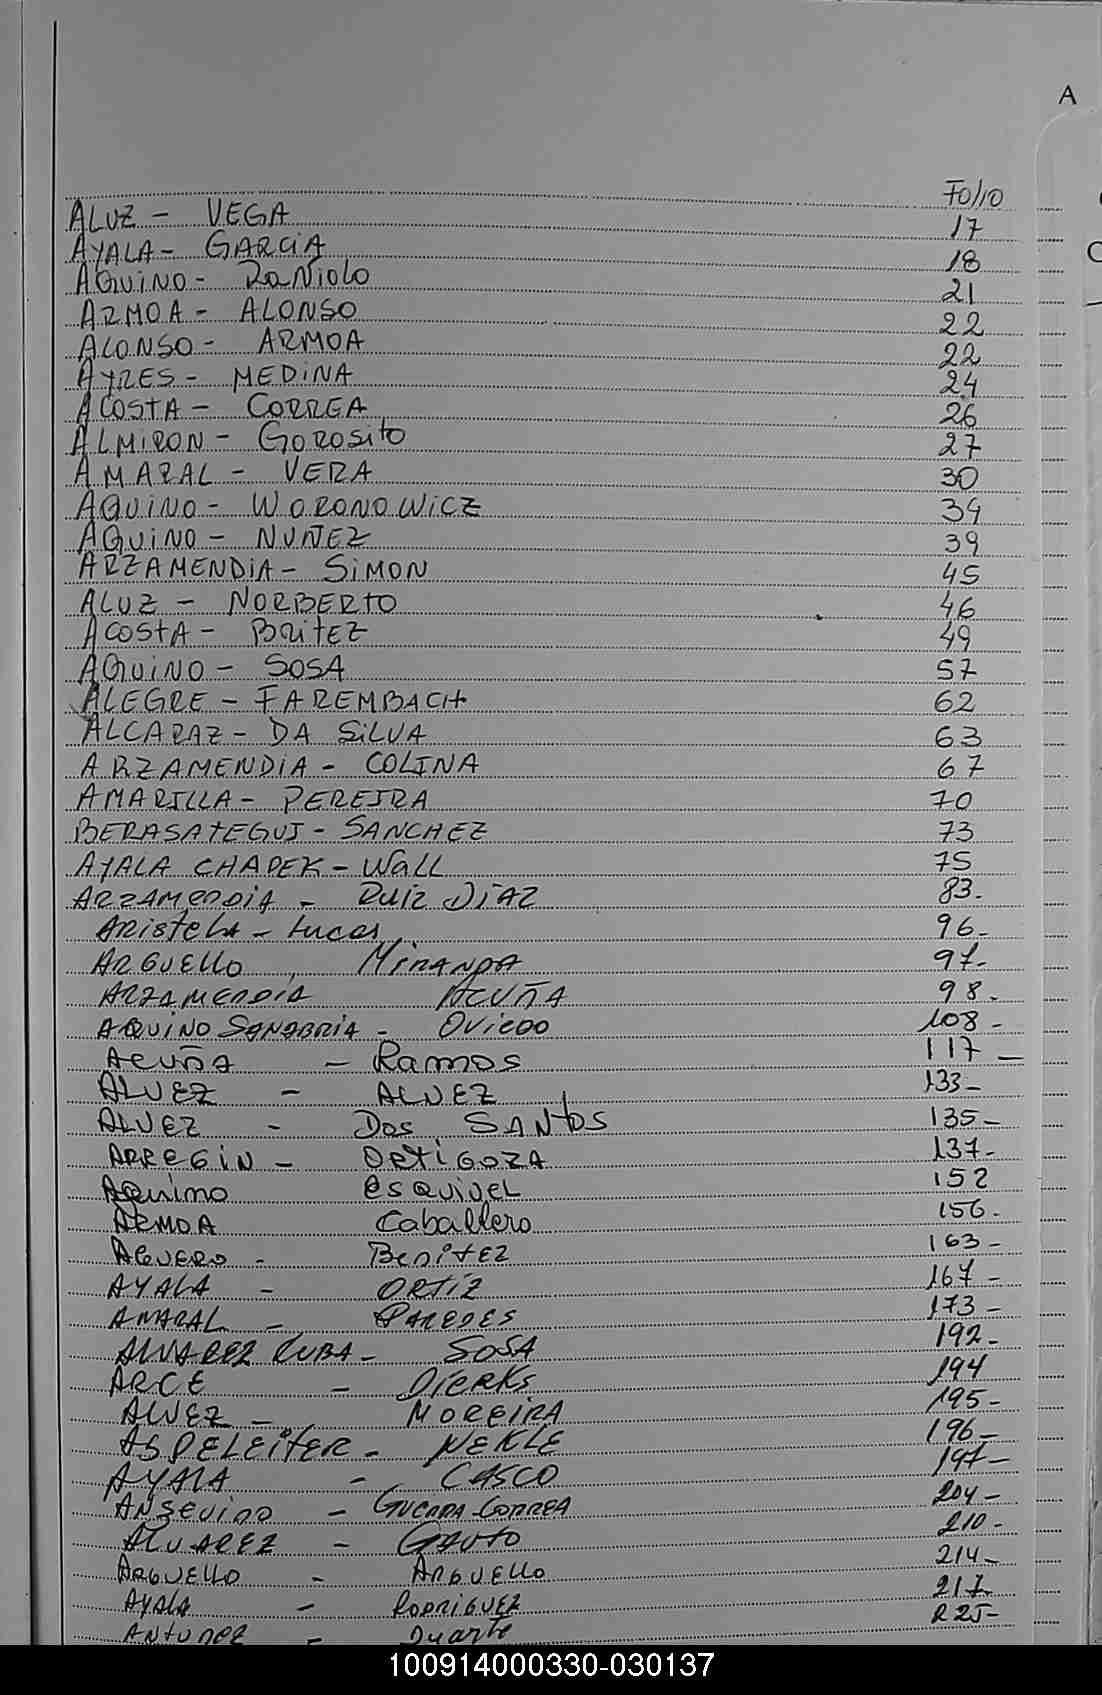 A
Folio
ALUZ - VEGA 17
AYALA - GARCiA 18
AQUiNO - RaNiolo 21
ARMOA - ALONSO 22
ALONSO - ARMOA 22
AYRES - MEDiNA 24
ACOSTA - CORREA 26
ALMiRON - GOROSito 27
AMARAL - VERA 30
AQUiNO - WORONOWiCZ 39
AQUiNO - NUÑEZ 39
ARZAMENDiA - SiMON 45
ALUZ - NORBERTO 46
ACOSTA - BRiTEZ 49
AQUiNO - SOSA 57
ALEGRE - FAREMBACH 62
ALCARAZ - DA SiLVA 63
ARZAMENDIA - COLINA 67
AMARILLA - PEREIRA 70
BERASATEGUI - SANCHEZ 73
AYALA CHAPEK - Wall 75
ARZAMENDIA - RUiZ DiAZ 83.
ARistela - Lucas 96-
ARGUELLO MiRANDA 97-
ARZAMENDIA ACUÑA 98.
AQUINO SANABRIA - OVIEDO 108-
ACUÑA - Ramos 117-
ALVEZ - ALVEZ 133-
ALVEZ - Dos SANTOS 135-
ARREGIN - ORTIGOZA 137-
Aquino esquivel 152
ARMOA Caballero 156-
AGUERO - Benitez 163-
AYALA - ORTIZ 167-
AMARAL - PAREDES 173-
ALVAREZ CUBA - SOSA 192-
ARCE - Dierks 194
ALVEZ - MOREIRA 195-
ASPELEITER - NEKLE 196-
AYALA - CASCO 197-
ANSEVINO - GUERRA CORREA 204-
ALVAREZ - GAUTO 210-
ARGUELLO - ARGUELLO 214-
AYALA - RODRIGUEZ 217
ANTUNEZ - Duarte 225-
100914000330-030137